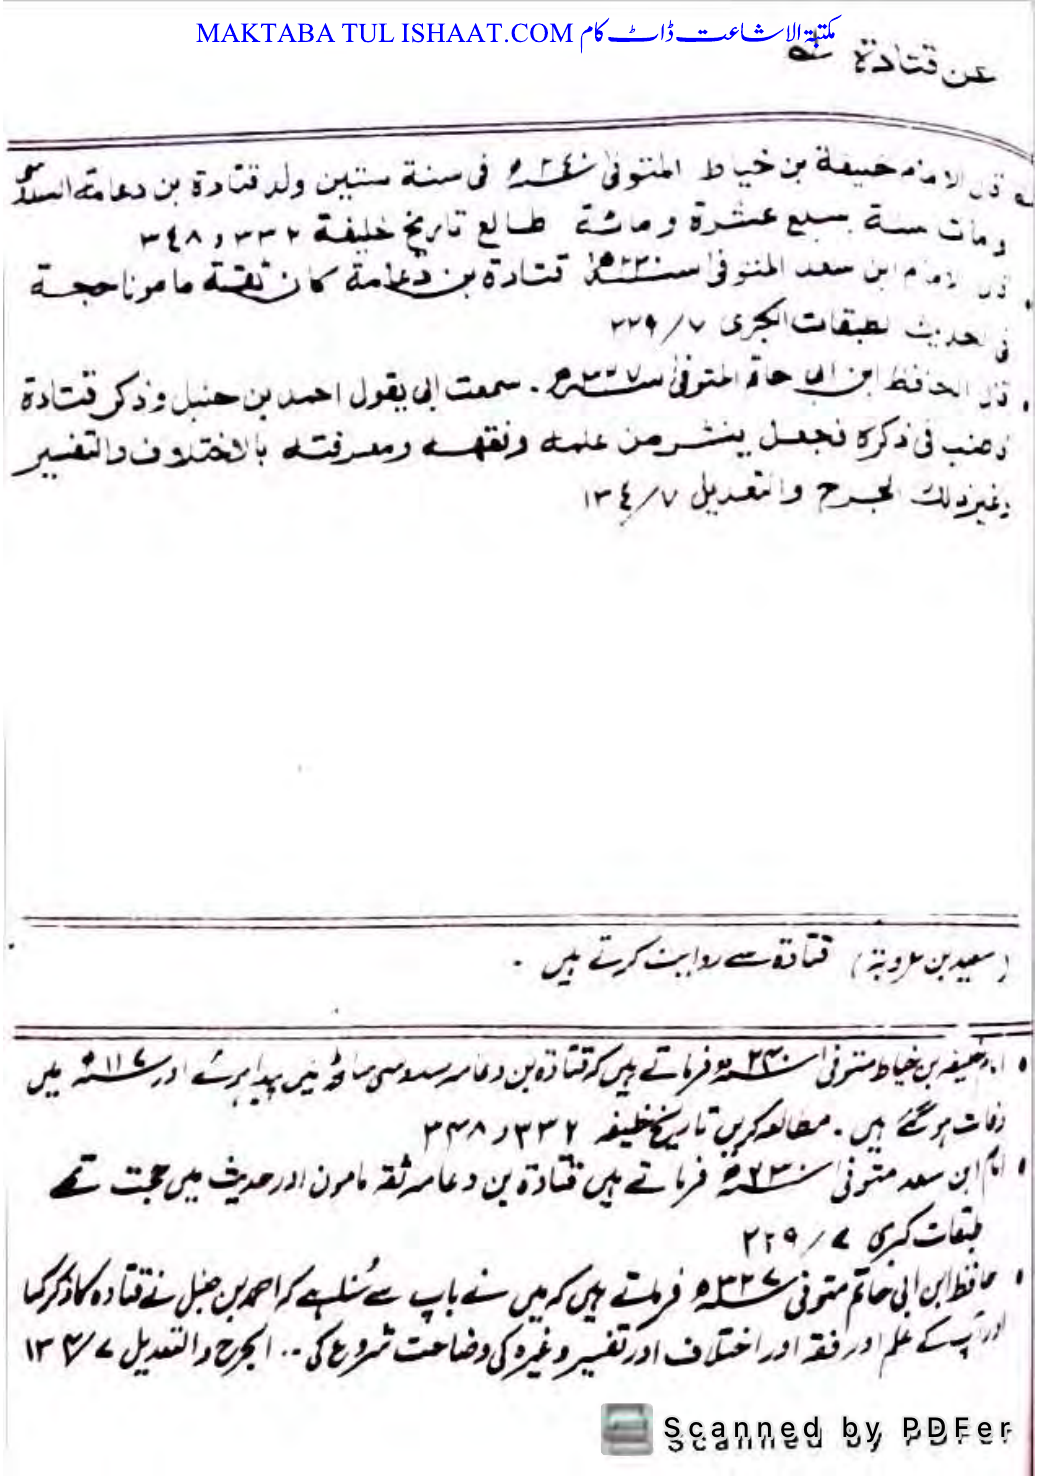 MAKTABA TUL ISHAAT.COM مکتبۃ الاشاعت ڈاٹ کام
عن قتادة
قال الامام خليفة بن خياط المتوفى ٢٤٠ھ فى سنة ستين ولد قتادة بن دعامة السدوسى
ومات سنة سبع عشرة ومائة طالع تاريخ خليفة ٣٣٢ و ٣٤٨
قال الامام ابن سعد المتوفى سنہ ٢٣٠ھ قتادة بن دعامة كان ثقة مامونا حجة
فى الحديث لطبقات الكبرى ٧/ ٢٢٩
قال الحافظ ابن ابى حاتم المتوفى ٣٢٧ھ . سمعت ابى يقول احمد بن حنبل وذكر قتادة
فاطنب فى ذكره فجعل ينشر من علمه وفقهه ومعرفته بالاختلاف والتفسير
وغير ذلك الجرح والتعديل ٧/ ١٣٤
(سعید بن عروبۃ) قتادة سے روایت کرتے ہیں .
امام خلیفہ بن خیاط متوفی ٢٤٠ھ فرماتے ہیں کہ قتادة بن دعامہ سدوسی ساٹھ میں پیدا ہوئے اور ١١٧ھ میں
وفات ہو گئے ہیں . مطالعہ کریں تاریخ خلیفہ ٣٣٢ و ٣٤٨
امام ابن سعد متوفی ٢٣٠ھ فرماتے ہیں قتادة بن دعامہ ثقہ مامون اور حدیث میں حجت تھے
طبقات کبری ٧/ ٢٢٩
حافظ ابن ابی حاتم متوفی ٣٢٧ھ فرماتے ہیں کہ میں نے باپ سے سُنا ہے کہ احمد بن حنبل نے قتادہ کا ذکر کیا
اور آپ کے علم اور فقہ اور اختلاف اور تفسیر وغیرہ کی وضاحت شروع کی .. الجرح والتعدیل ٧/ ١٣٤
Scanned by PDFer